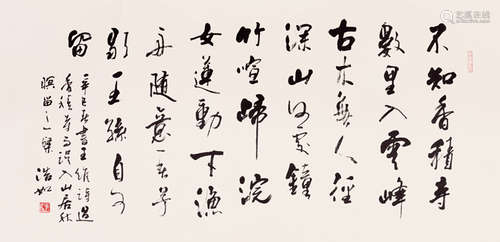 不知香積寺
數里入雲峰
古木無人徑
深山何處鐘
竹喧歸浣
女蓮動下漁
舟隨意春芳
歇王孫自可
留
辛巳春書王維詩過
香積寺 入山居秋
暝留之一樂
浩如